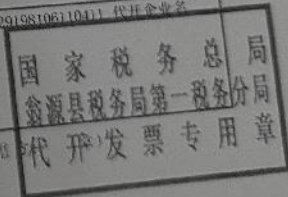 2919810611041) 代开企业名
国家税务总局
翁源县税务局第一税务分局
代开发票专用章